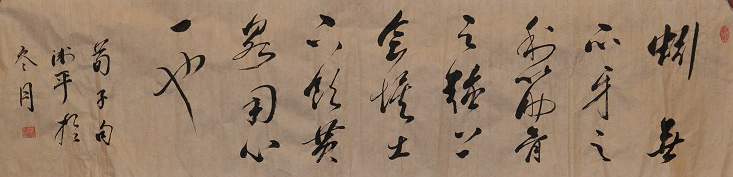 蚓無
爪牙之
利筋骨
之強上
食埃土
下飲黃
泉用心
一也
荀子句
平於
冬月